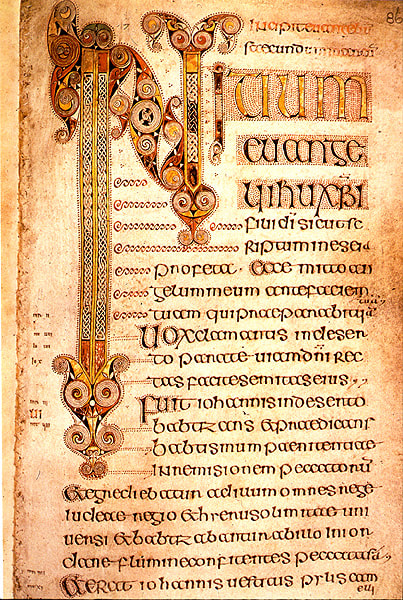 86
secundum marcum
INITIUM
EUANGE
LII IHU XPI
filii di sicut sc
riptum in eseia
profeta. Ecce mitto an
gelum meum ante faciem
tuam
tuam qui praeparabit uiā
Uox clamantis in deser
to parate uiam dn̄i rec
tas facite semitas eius
Fuit iohannis in deserto
babtizans et praedicans
babtismum paenitentiae
in remisionem peccatorū
Et egrediebatur ad illum omnes
iudeae regio et hierusolimitae uni
uersi et babtiz abantur ab illo in ior
dane flumine confitentes peccata sua
Et erat iohannis uestitus pylis cam
eli